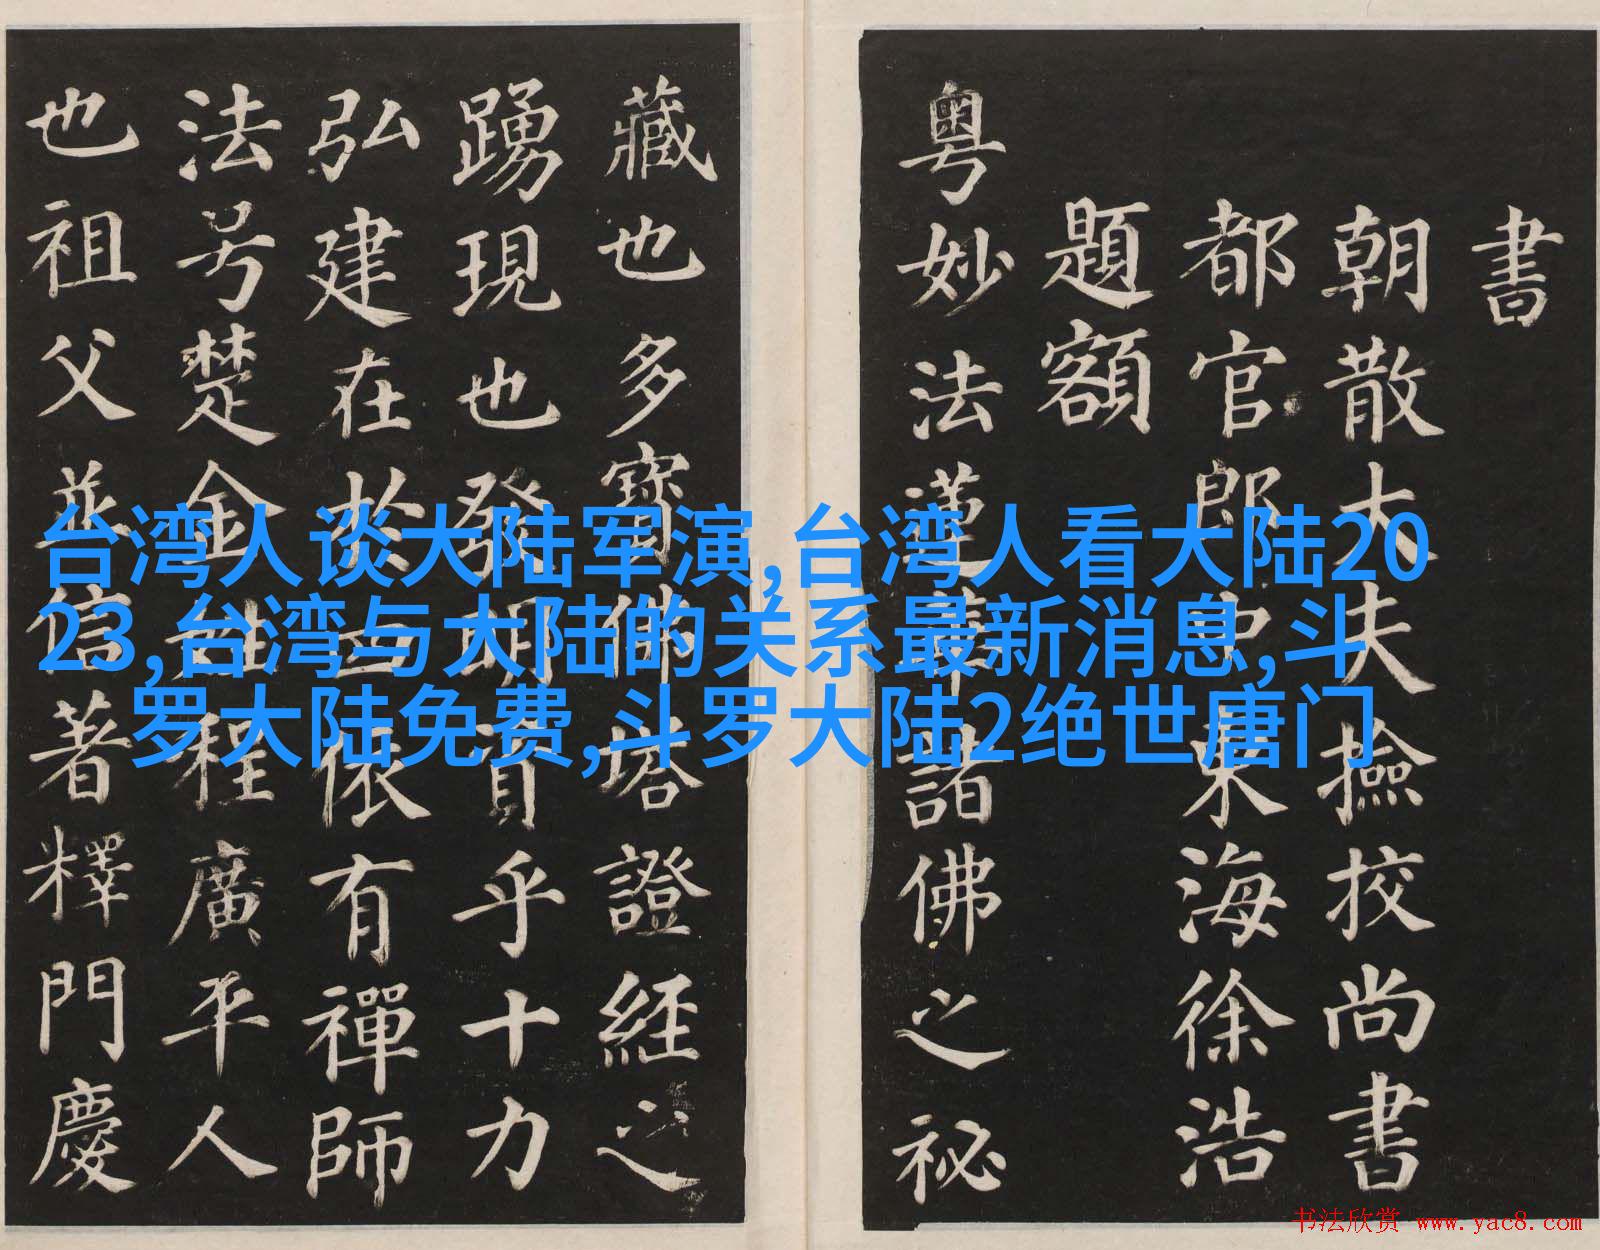 書
朝散大夫撿校尚書
都官郎中東海徐浩
題額
粤妙法蓮華諸佛之祕
藏也多寶佛塔證經之
踴現也發明資乎十力
弘建在於四依有禪師
法号楚金姓程廣平人
也祖父並信著釋門慶
台湾人谈大陆军演,台湾人看大陆20
23,台湾与大陆的关系最新消息,斗
罗大陆免费,斗罗大陆2绝世唐门
书法欣赏 www.yac8.com